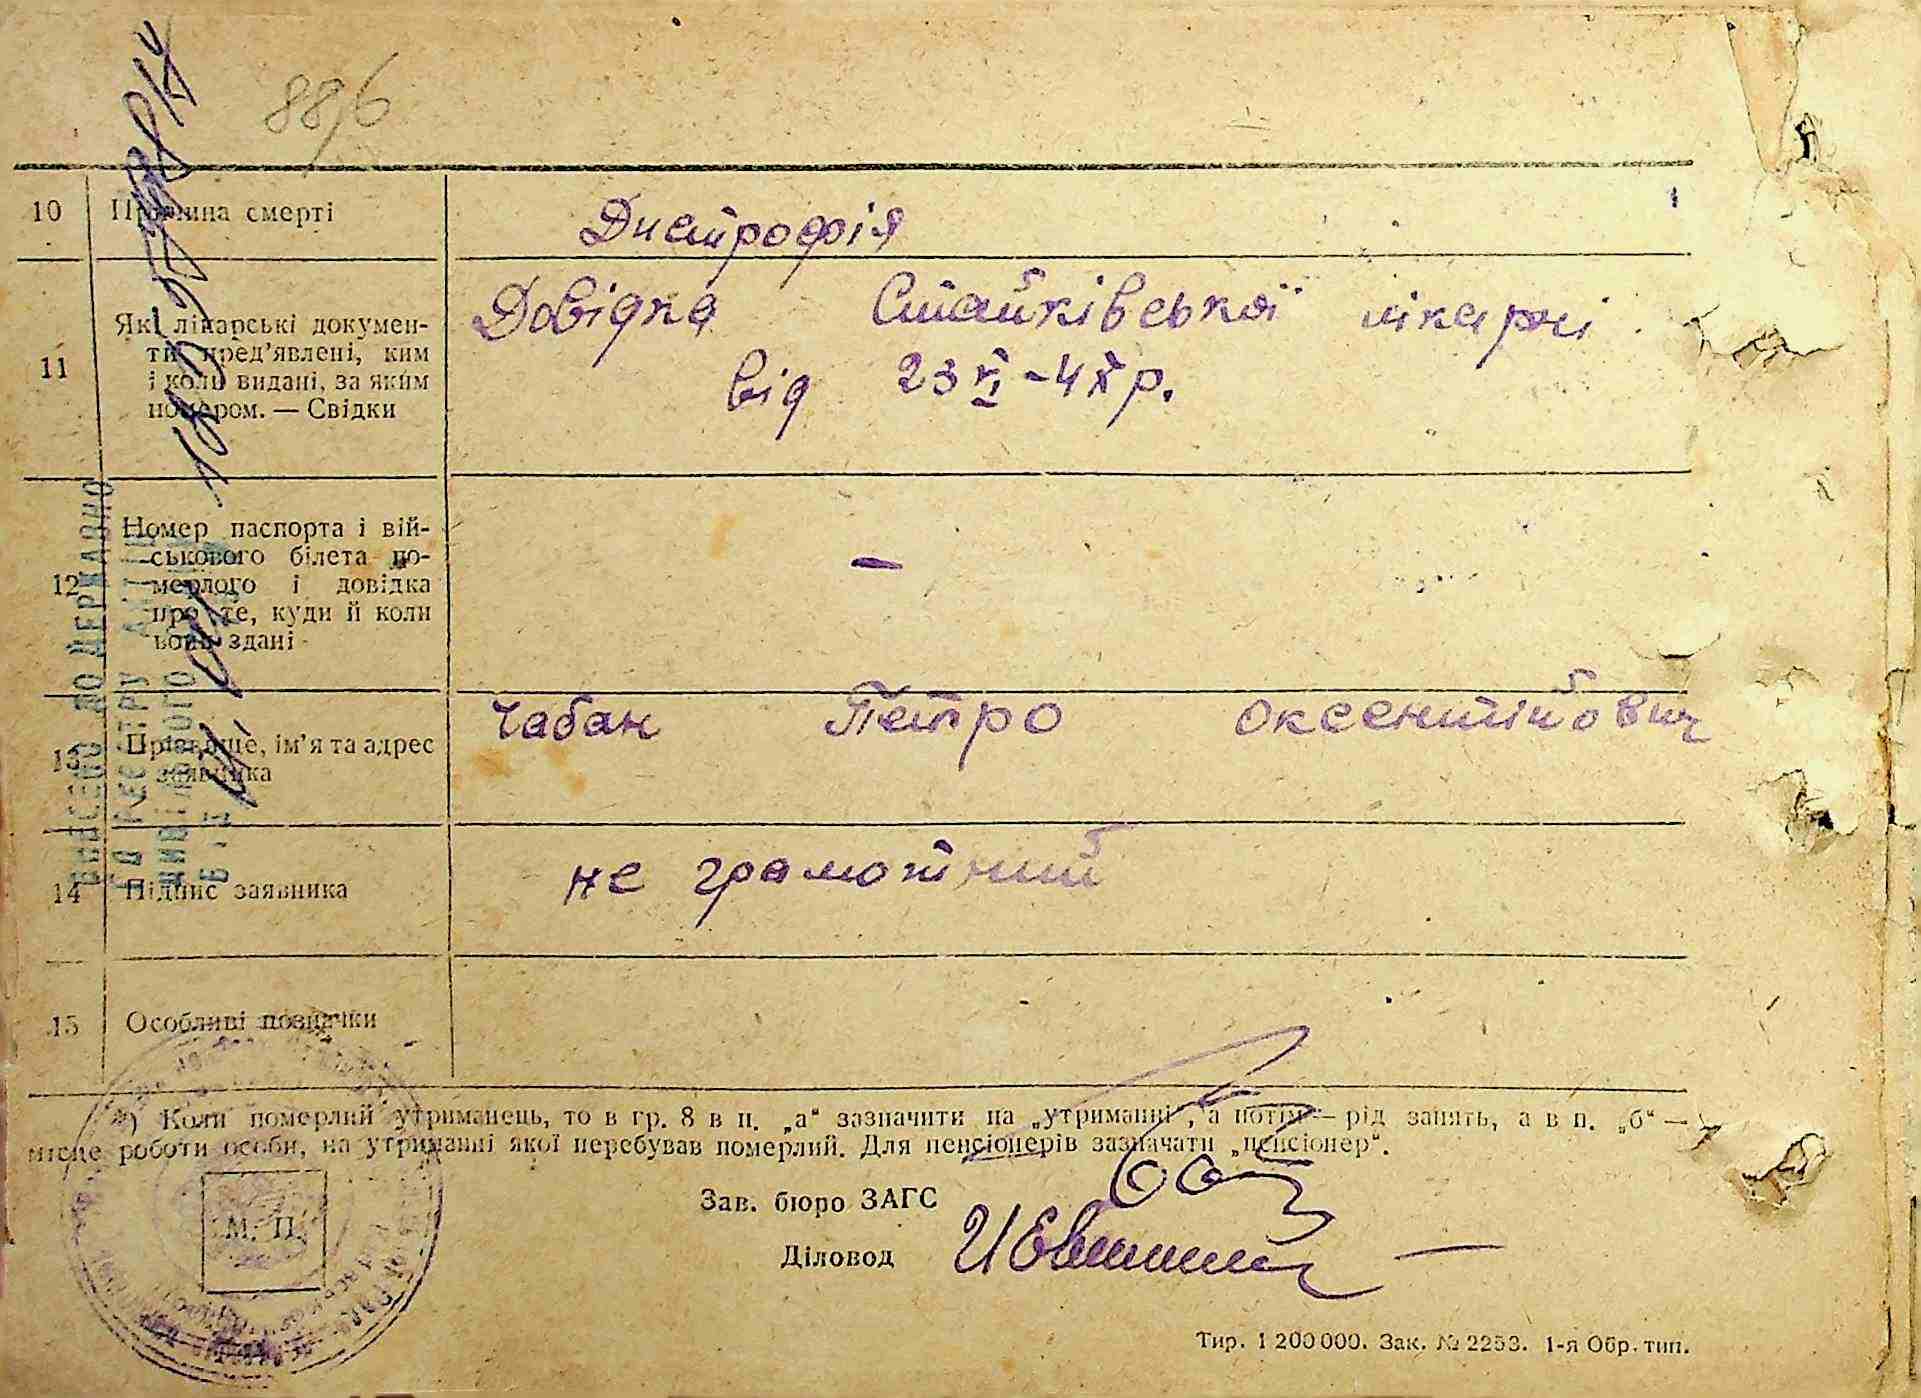 88,6
10 Причина смерті Дистрофія
11 Які лікарські докумен-
ти пред'явлені, ким
і коли видані, за яким
номером. — Свідки
Довідка Стайківської лікарні
від 23 VI - 47 р.
12 Номер паспорта і вій-
ськового білета по-
мерлого і довідка
про те, куди й коли
вони здані -
—
13 Прізвище, ім'я та адрес
заявника
Чабан Петро Оксентійович
14 Підпис заявника не грамотний
15 Особливі позначки
*) Коли померлий утриманець, то в гр. 8 в п. „а“ зазначити на „утриманні“, а потім — рід занять, а в п. „б“ —
місце роботи особи, на утриманні якої перебував померлий. Для пенсіонерів зазначати „пенсіонер“.
М. П.
Зав. бюро ЗАГС
Діловод
Тир. 1 200 000. Зак. № 2253. 1-я Обр. тип.
ВНЕСЕНО ДО ДЕРЖАВНО
ГО РЕЄСТРУ АКТІВ
ЦИВІЛЬНОГО